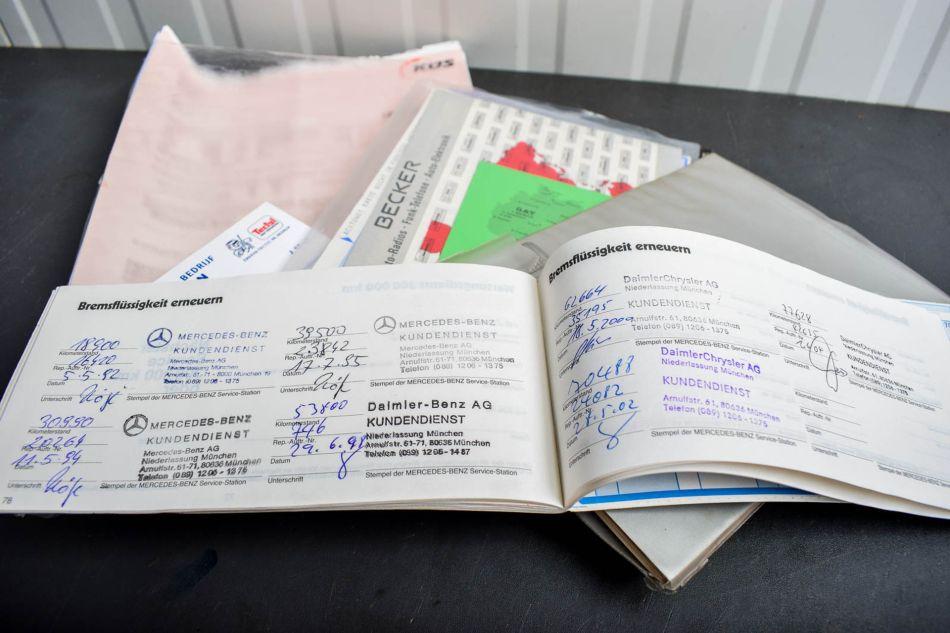 KÜS
BECKER
Auto-Radios · Funk-Telefone · Auto-Elektronik
Tectyl
BEDRIJF
Bremsflüssigkeit erneuern
18900
Kilometerstand
Rep.-Auftr.-Nr.
5-5-92
Datum
Unterschrift
MERCEDES-BENZ
KUNDENDIENST
Mercedes-Benz AG
Niederlassung München
Telefon (089) 12 06 - 13 75
Stempel der MERCEDES-BENZ Service-Station
39500
Kilometerstand
Rep.-Auftr.-Nr.
17.7.95
Datum
Unterschrift
MERCEDES-BENZ
KUNDENDIENST
Mercedes-Benz AG
Niederlassung München
Arnulfstr. 61-71, 80636 München
Telefon (089) 12 06 - 13 75
Stempel der MERCEDES-BENZ Service-Station
30990
Kilometerstand
20264
Rep.-Auftr.-Nr.
11-5-94
Datum
Unterschrift
MERCEDES-BENZ
KUNDENDIENST
Mercedes-Benz AG
Niederlassung München
Arnulfstr. 61-71, 80636 München
Telefon (089) 12 06 - 13 75
Stempel der MERCEDES-BENZ Service-Station
53800
Kilometerstand
Rep.-Auftr.-Nr.
29.6.98
Datum
Unterschrift
Daimler-Benz AG
KUNDENDIENST
Niederlassung München
Arnulfstr. 61-71, 80636 München
Telefon (089) 12 06 - 14 87
Stempel der MERCEDES-BENZ Service-Station
78
Bremsflüssigkeit erneuern
62664
18.5.2000
DaimlerChrysler AG
Niederlassung München
KUNDENDIENST
Arnulfstr. 61-71, 80636 München
Telefon (089) 12 06 - 13 75
Stempel der MERCEDES-BENZ Service-Station
70488
24082
27.5.02
DaimlerChrysler AG
Niederlassung München
KUNDENDIENST
Arnulfstr. 61-71, 80636 München
Telefon (089) 12 06 - 13 75
Stempel der MERCEDES-BENZ Service-Station
77628
Kilometerstand
Rep.-Auftr.-Nr.
Datum
Unterschrift
DaimlerChrysler AG
Niederlassung München
KUNDENDIENST
Arnulfstr. 61-71, 80636 München
Stempel der MERCEDES-BENZ Service-Station
Kilometerstand
Rep.-Auftr.-Nr.
Datum
Unterschrift
Stempel der MERCEDES-BENZ Service-Station